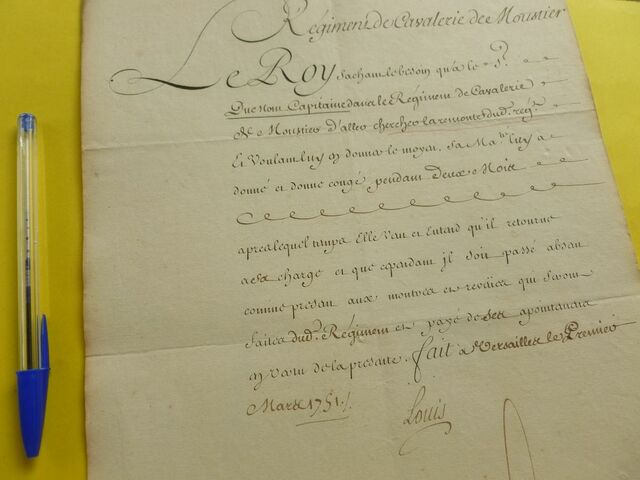 Régiment de Cavalerie de Moustier
Le Roy sachant le besoin qu'a le S.r
Que nom Capitaine dans le Régiment de Cavalerie
de Moustier d'aller chercher la remonte dud.t rég.t
Et Voulant luy en donner le moyen, Sa Ma.té luy a
donné et donne congé pendant Deux Mois
apres lequel temps Elle Veut et Entend qu'il retourne
a sa charge et que cependant jl soit passé absent
comme present aux montres et reveües qui seront
faites dud.t Régiment et payé de ses apointemens
en vertu de la presente. fait a Versailles le Premier
Mars 1751./.
Louis